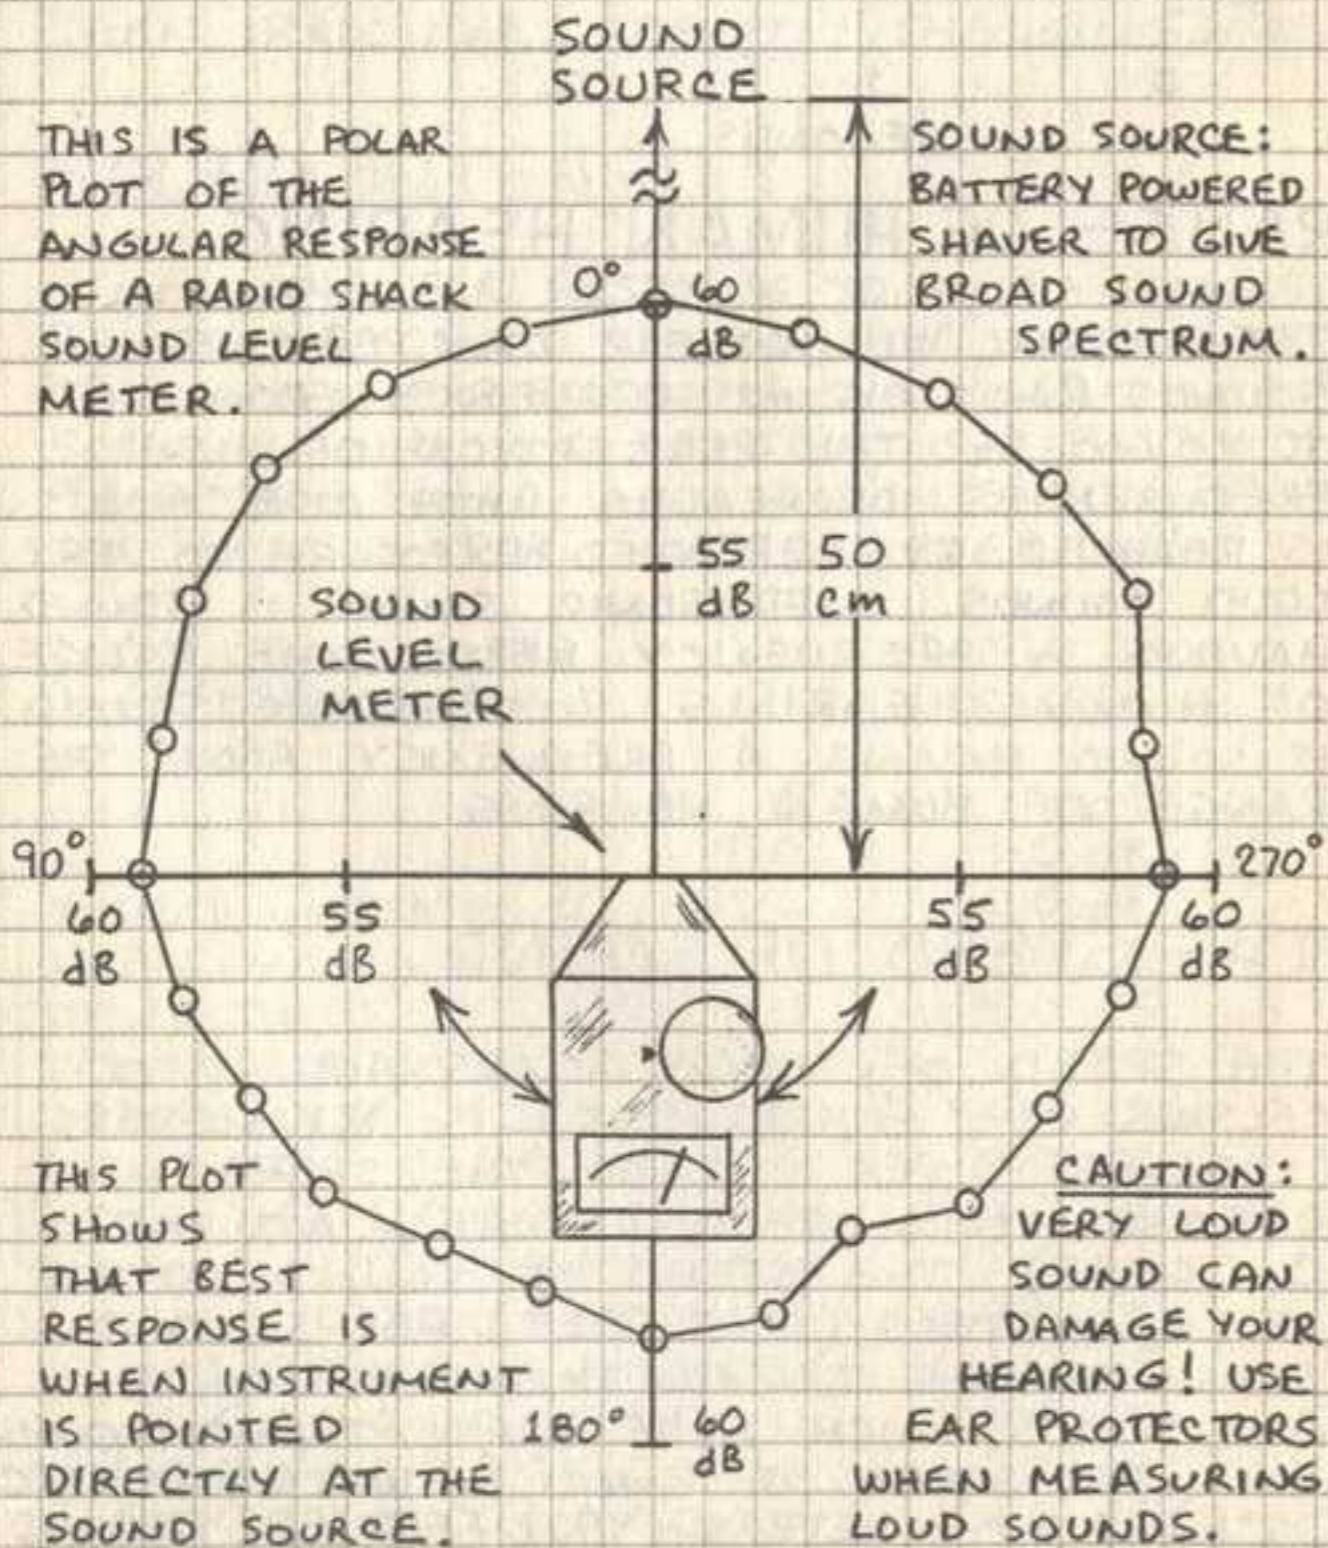 SOUND
SOURCE
THIS IS A POLAR
PLOT OF THE
ANGULAR RESPONSE
OF A RADIO SHACK
SOUND LEVEL
METER.
SOUND SOURCE:
BATTERY POWERED
SHAVER TO GIVE
BROAD SOUND
SPECTRUM.
0°
60
dB
55
dB
50
cm
SOUND
LEVEL
METER
90°
60
dB
55
dB
55
dB
270°
60
dB
THIS PLOT
SHOWS
THAT BEST
RESPONSE IS
WHEN INSTRUMENT
IS POINTED
DIRECTLY AT THE
SOUND SOURCE.
180°
60
dB
CAUTION:
VERY LOUD
SOUND CAN
DAMAGE YOUR
HEARING! USE
EAR PROTECTORS
WHEN MEASURING
LOUD SOUNDS.